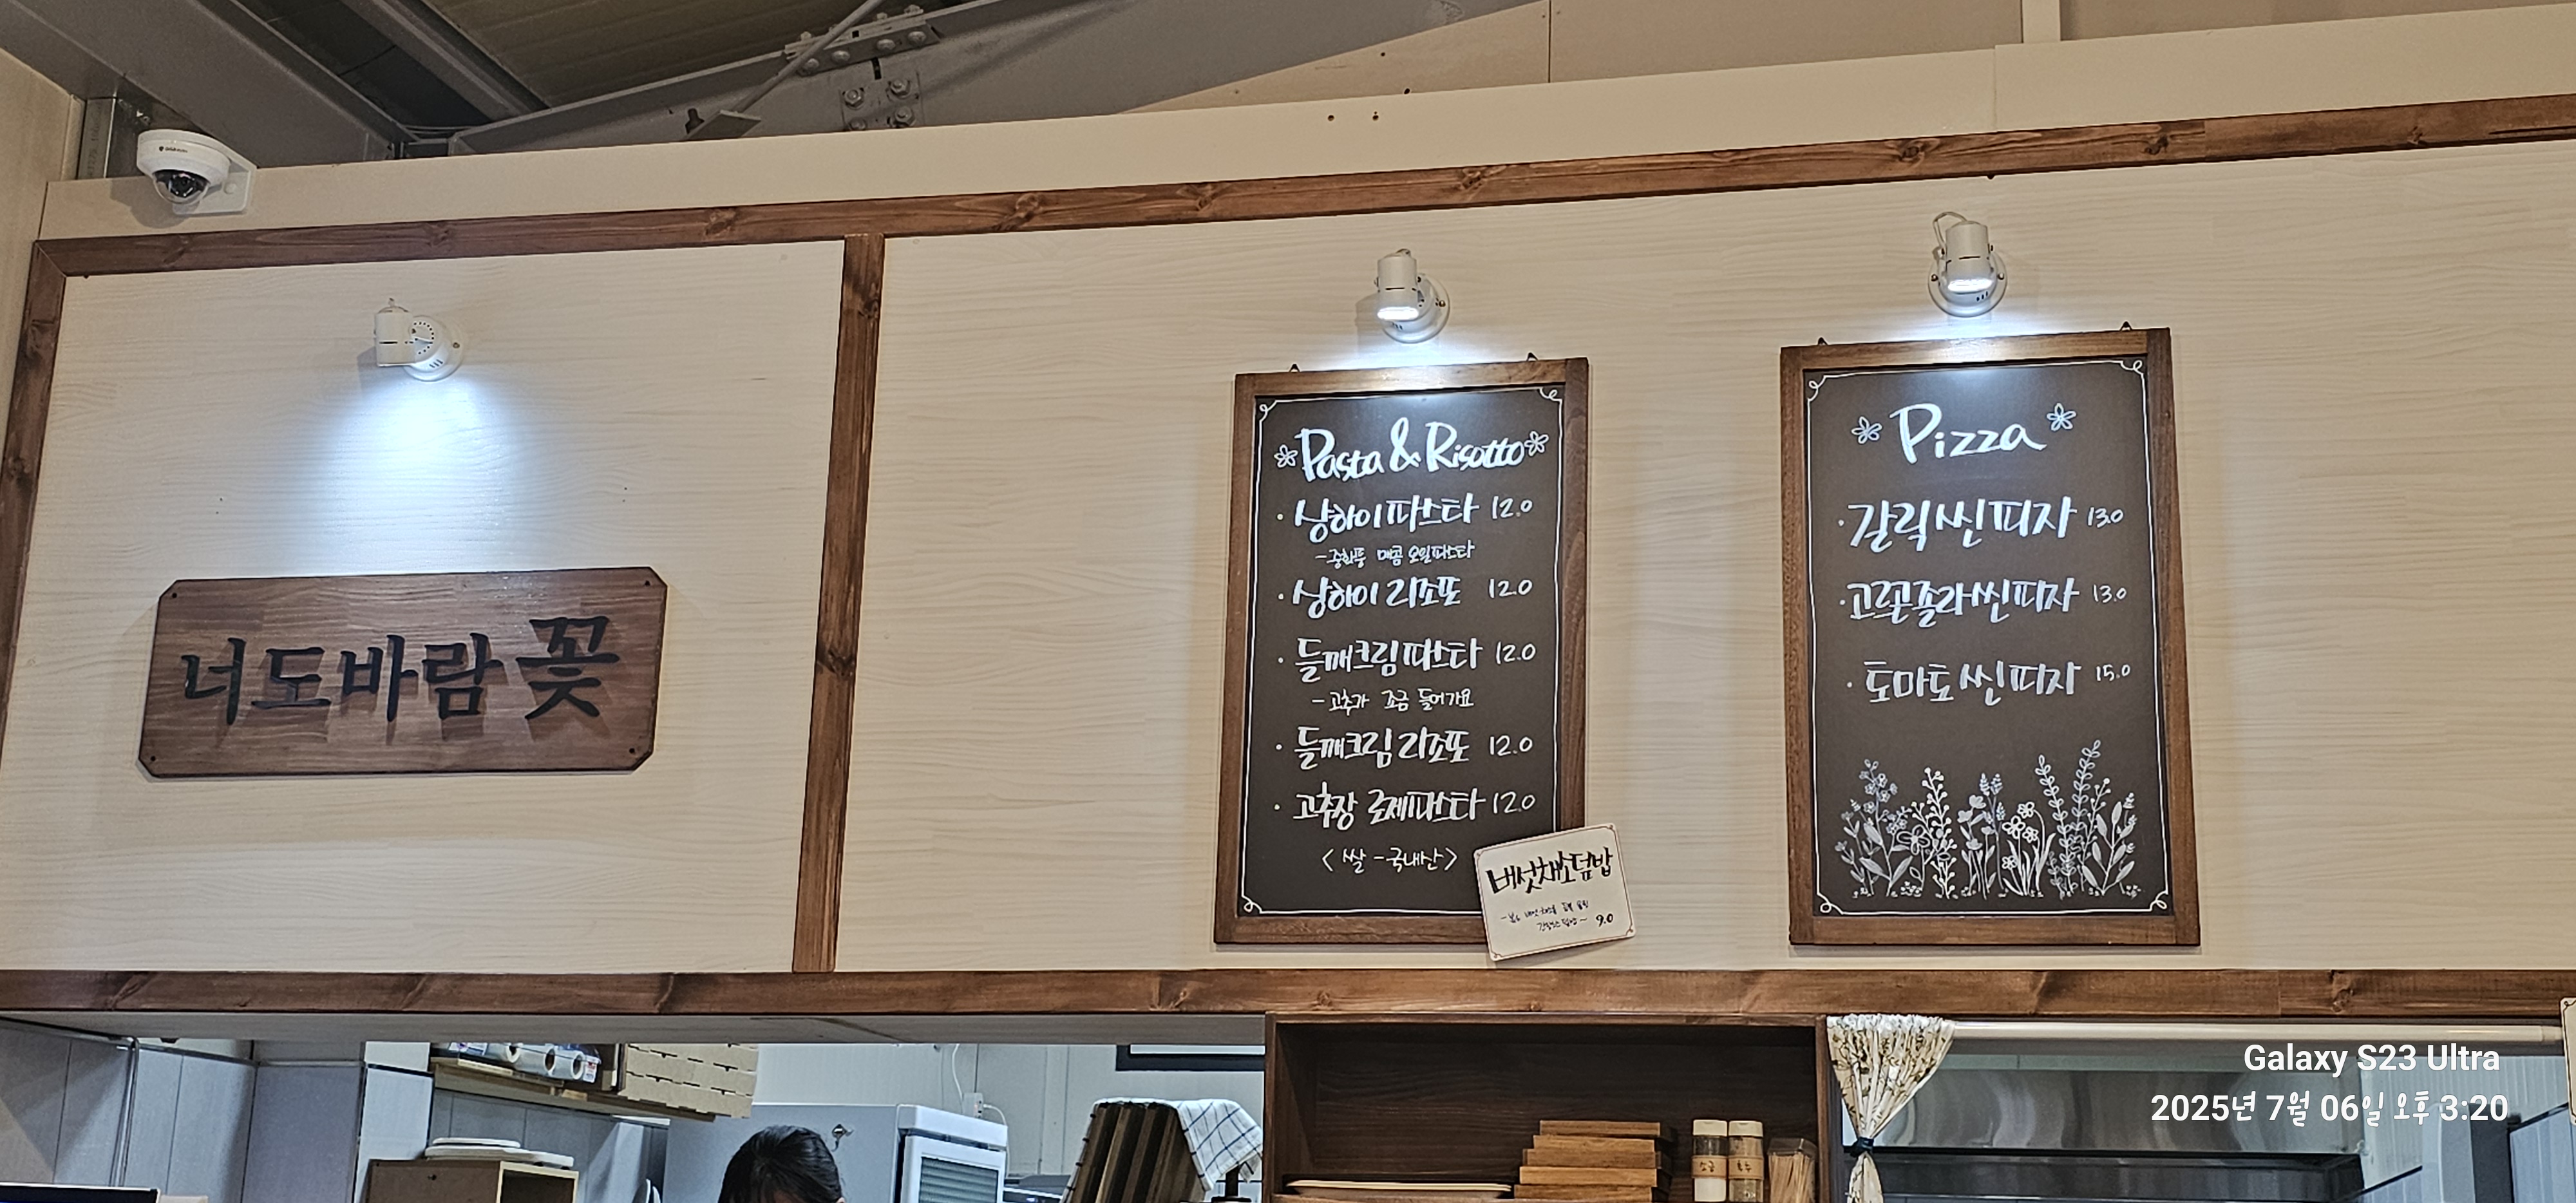 너도바람꽃
Pasta & Risotto
· 상하이파스타 12.0
- 중화풍 매콤 오일파스타
· 상하이 리조또 12.0
· 들깨크림파스타 12.0
- 고추가 조금 들어가요
· 들깨크림 리조또 12.0
· 고추장 로제파스타 12.0
< 쌀 - 국내산 >
버섯채소덮밥
9.0
Pizza
· 갈릭씬피자 13.0
· 고르곤졸라씬피자 13.0
· 토마토씬피자 15.0
소금
후추
Galaxy S23 Ultra
2025년 7월 06일 오후 3:20